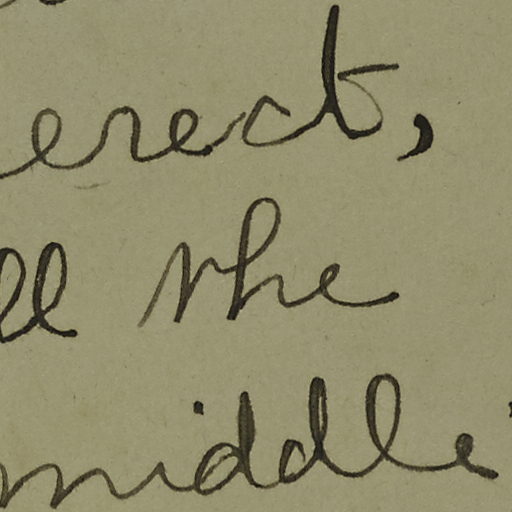 erect,
ll the
middle